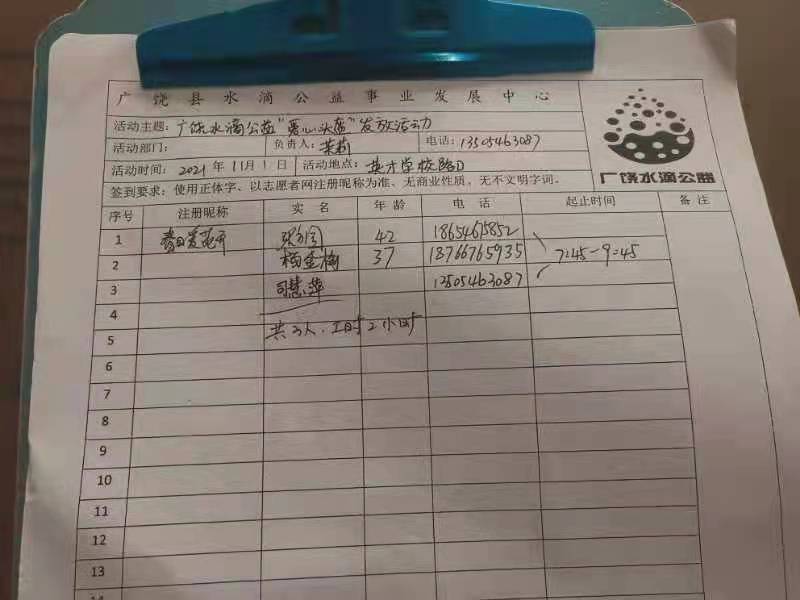 广饶县水滴公益事业发展中心
活动主题：广饶水滴公益"爱心头盔"发放活动
活动部门： 负责人：茉莉 电话：13505463087
活动时间：2021年11月1日 活动地点：英才学校路口
签到要求：使用正体字、以志愿者网注册昵称为准、无商业性质，无不文明字词。
广饶水滴公益
序号 注册昵称 实名 年龄 电话 起止时间 备注
1 春日爱花开 42 18654615852
2 杨金梅 37 18766765935 7:45-9:45
3 司慧萍 13505463087
4
5 共3人，工时2小时
6
7
8
9
10
11
12
13
14